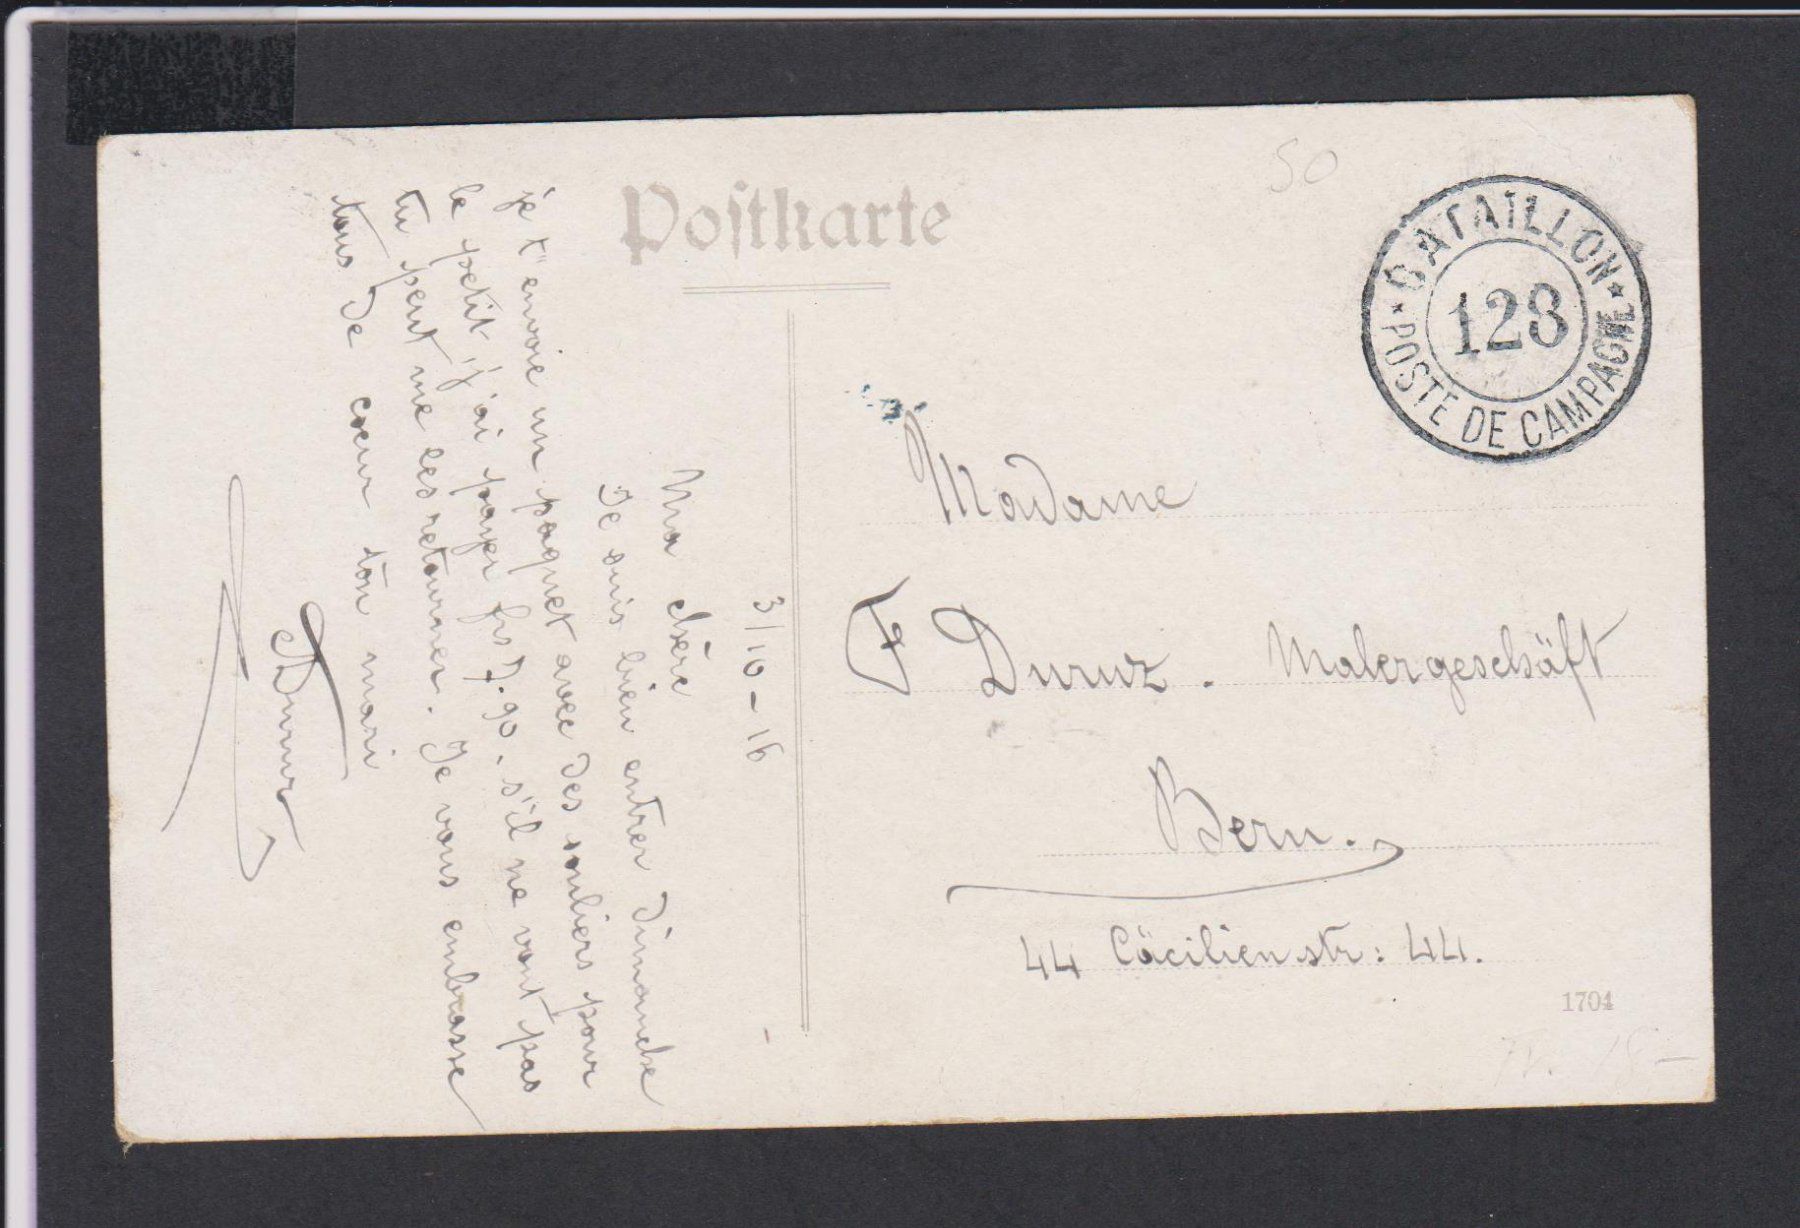 Postkarte
50
BATAILLON
128
POSTE DE CAMPAGNE
3/10-16
Ma chère
Je suis bien entrer dimanche
je t'envoie un paquet avec des souliers pour
le petit j'ai payer frs 7.90. s'il ne vont pas
tu peut me les retourner. Je vous embrasse
tous de coeur ton mari
Duruz
Madame
F Duruz. Malergeschäft
Bern.
44 Cäcilienstr: 44.
1704